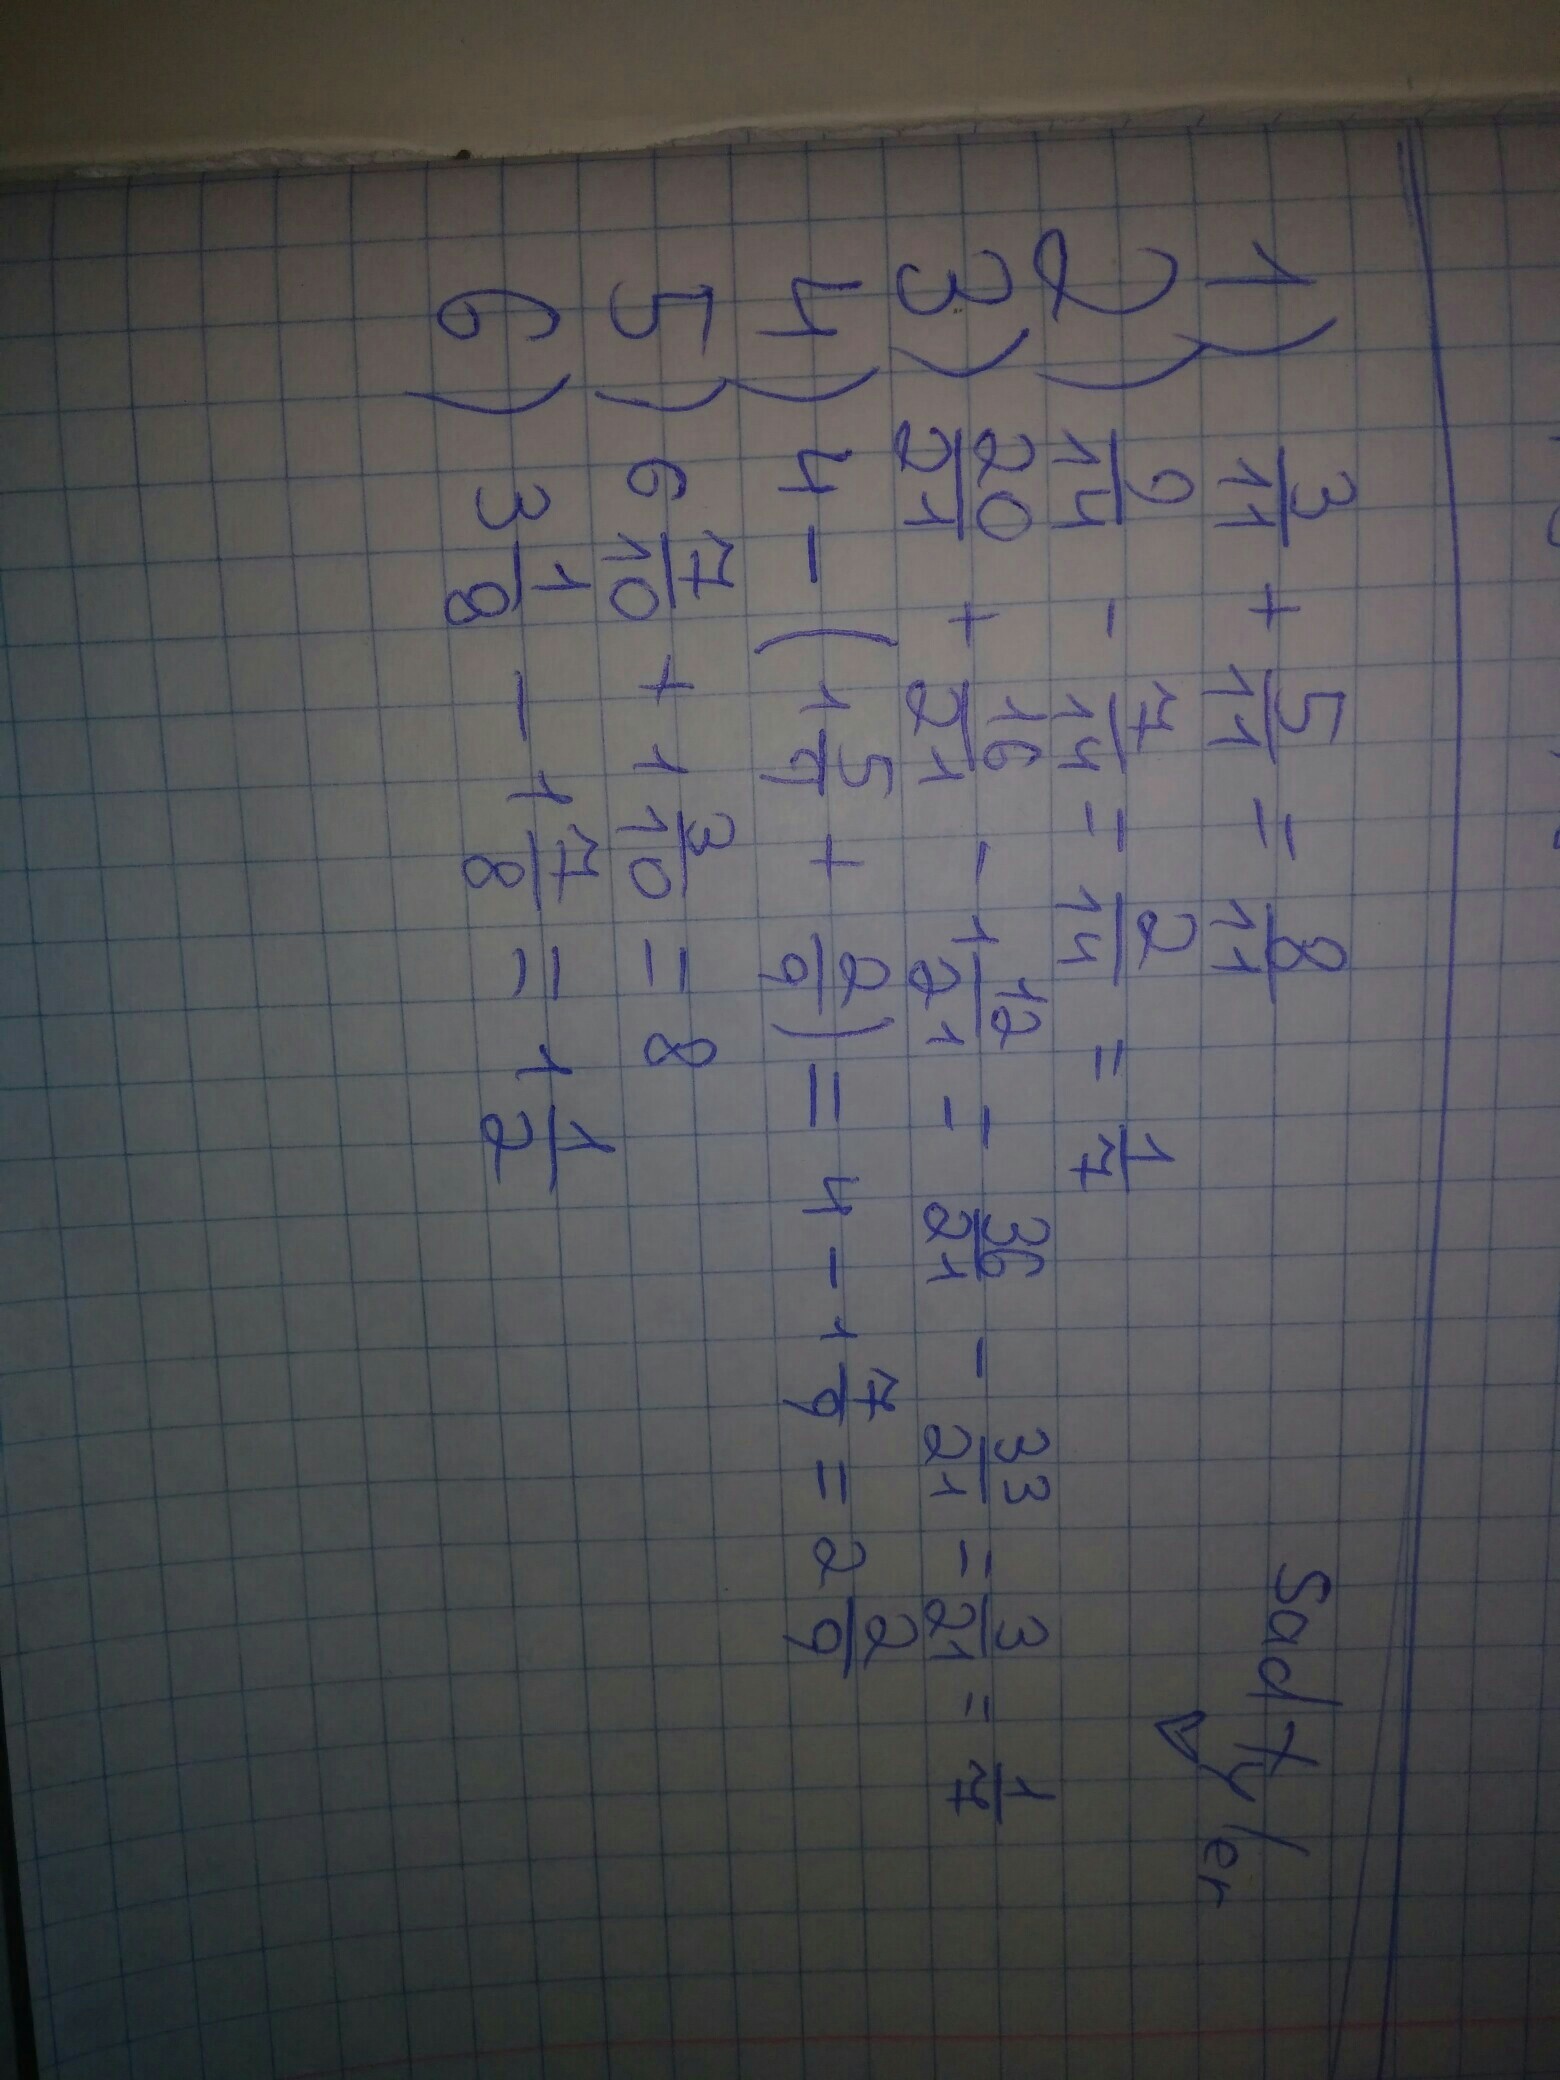 1) 3/11 + 5/11 = 8/11
2) 9/14 - 7/14 = 2/14 = 1/7
3) 20/21 + 16/21 - 1 12/21 = 36/21 - 33/21 = 3/21 = 1/7
4) 4 - (1 5/9 + 2/9) = 4 - 1 7/9 = 2 2/9
5) 6 7/10 + 1 3/10 = 8
6) 3 1/8 - 1 7/8 = 1 1/2
Sad tyler